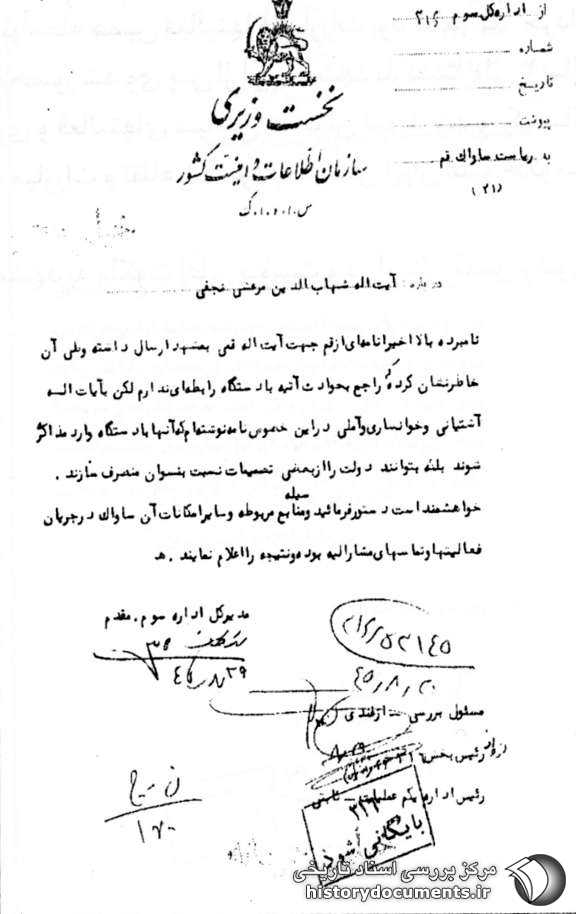 از اداره کل سوم ۳۱۶
شماره
تاریخ
پیوست
به ریاست ساواک قم
(۲۱)
نخست وزیری
سازمان اطلاعات و امنیت کشور
س.ا.و.ا.ک
درباره: آیت اله شهاب الدین مرعشی نجفی
نامبرده بالا اخیرا نامه‌ای از قم جهت آیت اله قمی بمشهد ارسال داشته وطی آن
خاطرنشان کرده که راجع بحوادث آتیه با دستگاه رابطه‌ای ندارم لکن بآیات اله
آشتیانی وخوانساری وآملی در این خصوص نامه نوشته‌ام که آنها با دستگاه وارد مذاکره
شوند بلکه بتوانند دولت را از بعضی تصمیمات نسبت بنسوان منصرف سازند .
خواهشمند است دستور فرمائید وسیله منابع مربوطه وسایر امکانات آن ساواک درجریان
فعالیتها وتماسهای مشارالیه بوده ونتیجه را اعلام نمایند . هـ
مدیرکل اداره سوم . مقدم
۳۱۶/۵۲۱۴۵
۴۵/۸/۳۰
۴۵/۸/۲۹
مسئول بررسی - ازغندی
رئیس بخش ۳۱۶
رئیس اداره یکم عملیات - ثابتی
بایگانی شود
مرکز بررسی اسناد تاریخی
historydocuments.ir